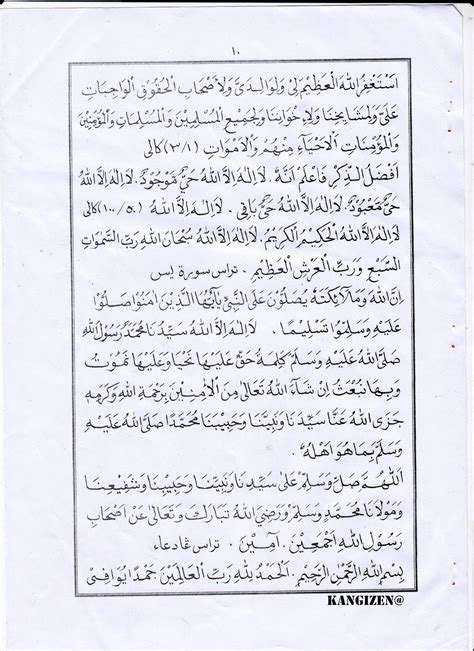 ١٠
اَسْتَغْفِرُ اللهَ الْعَظِيْمَ لِيْ وَلِوَالِدَيَّ وَلِأَصْحَابِ الْحُقُوْقِ الْوَاجِبَاتِ
عَلَيَّ وَلِمَشَايِخِنَا وَلِإِخْوَانِنَا وَلِجَمِيْعِ الْمُسْلِمِيْنَ وَالْمُسْلِمَاتِ وَالْمُؤْمِنِيْنَ
وَالْمُؤْمِنَاتِ اْلاَحْيَآءِ مِنْهُمْ وَاْلاَمْوَاتِ (٣/١) كالى
اَفْضَلُ الذِّكْرِ فَاعْلَمْ اَنَّهُ لاَاِلٰهَ اِلاَّ اللهُ حَيٌّ مَوْجُوْدٌ. لاَاِلٰهَ اِلاَّ اللهُ
حَيٌّ مَعْبُوْدٌ. لاَاِلٰهَ اِلاَّ اللهُ حَيٌّ بَاقِى. لاَاِلٰهَ اِلاَّ اللهُ (١٠٠/٥٠) كالى
لاَاِلٰهَ اِلاَّ اللهُ الْحَكِيْمُ الْكَرِيْمُ. لاَاِلٰهَ اِلاَّ اللهُ سُبْحَانَ اللهِ رَبِّ السَّمٰوَاتِ
السَّبْعِ وَرَبِّ الْعَرْشِ الْعَظِيْمِ. تراس سورة يس
اِنَّ اللهَ وَمَلاَئِكَتَهُ يُصَلُّوْنَ عَلَى النَّبِيِّ يٰآاَيُّهَا الَّذِيْنَ اٰمَنُوْا صَلُّوْا
عَلَيْهِ وَسَلِّمُوْا تَسْلِيْمًا. لاَاِلٰهَ اِلاَّ اللهُ سَيِّدُنَا مُحَمَّدٌ رَسُوْلُ اللهِ
صَلَّى اللهُ عَلَيْهِ وَسَلَّمَ كَلِمَةُ حَقٍّ عَلَيْهَا نَحْيَا وَعَلَيْهَا نَمُوْتُ
وَبِهَا نُبْعَثُ اِنْ شَآءَ اللهُ تَعَالَى مِنَ اْلاٰمِنِيْنَ بِرَحْمَةِ اللهِ وَكَرَمِهِ
جَزَى اللهُ عَنَّا سَيِّدَنَا وَنَبِيَّنَا وَحَبِيْبَنَا مُحَمَّدًا صَلَّى اللهُ عَلَيْهِ
وَسَلَّمَ بِمَا هُوَ اَهْلُهُ
اَللّٰهُمَّ صَلِّ وَسَلِّمْ عَلَى سَيِّدِنَا وَنَبِيِّنَا وَحَبِيْبِنَا وَشَفِيْعِنَا
وَمَوْلاَنَا مُحَمَّدٍ وَسَلِّمْ وَرَضِيَ اللهُ تَبَارَكَ وَتَعَالَى عَنْ اَصْحَابِ
رَسُوْلِ اللهِ اَجْمَعِيْنَ. اٰمِيْنَ. تراس ڠادعاء
بِسْمِ اللهِ الرَّحْمٰنِ الرَّحِيْمِ. اَلْحَمْدُ لِلّٰهِ رَبِّ الْعَالَمِيْنَ حَمْدًا يُوَافِيْ
KANGIZEN@